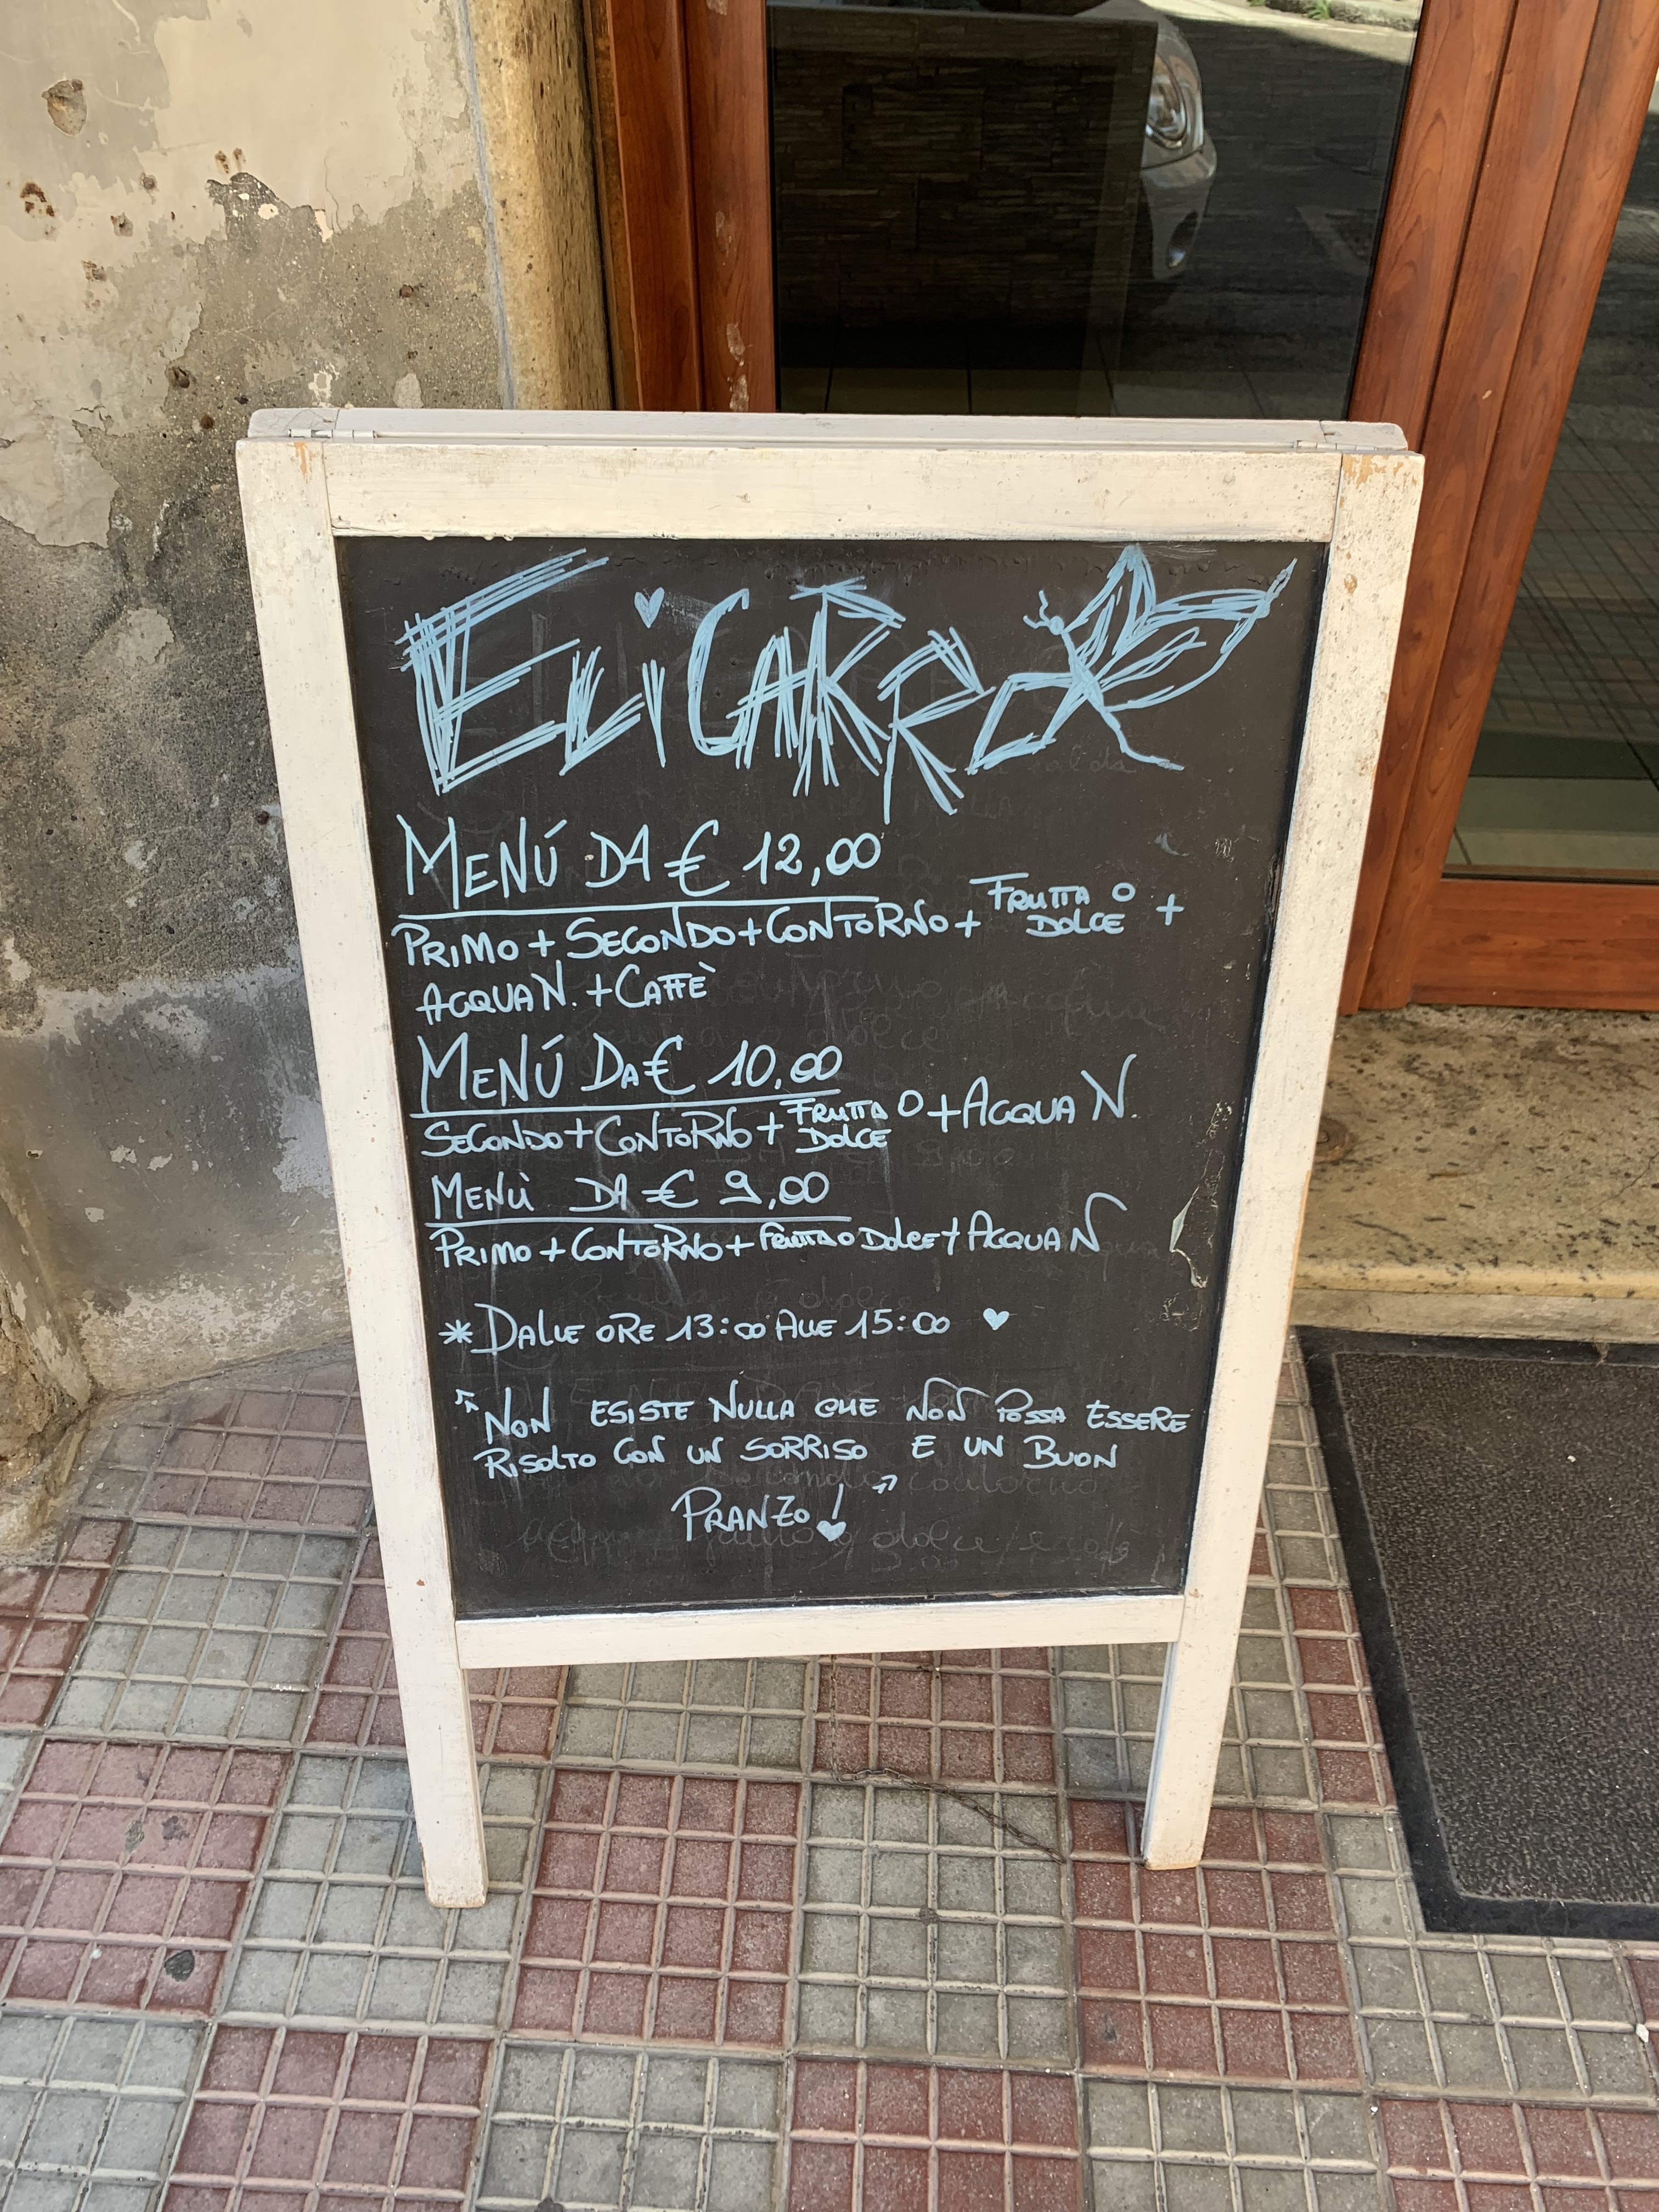 ELiCARR
MENÚ DA € 12,00
PRIMO + SECONDO + CONTORNO + FRUTTA O DOLCE +
ACQUA N. + CAFFÈ
MENÚ DA € 10,00
SECONDO + CONTORNO + FRUTTA O DOLCE + ACQUA N.
MENÙ DA € 9,00
PRIMO + CONTORNO + FRUTTA O DOLCE + ACQUA N
* DALLE ORE 13:00 ALLE 15:00 ♥
" NON ESISTE NULLA CHE NON POSSA ESSERE
RISOLTO CON UN SORRISO E UN BUON
PRANZO! "